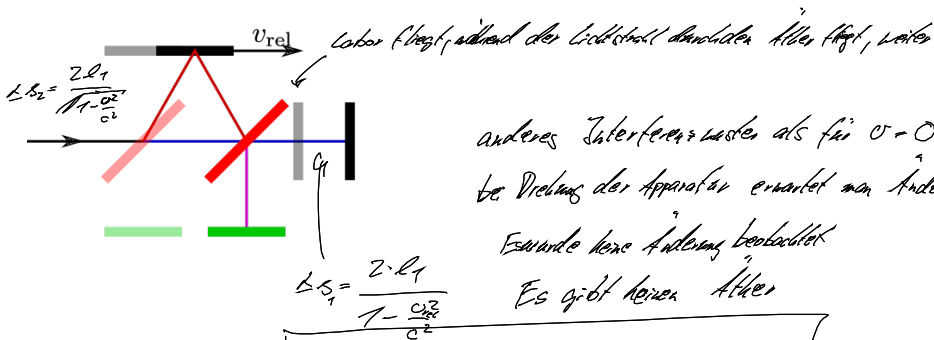 v_rel
Labor fliegt, während der Lichtstrahl durch den Äther fliegt, weiter
Δs₂ = 2l₁ / √(1 - v²/c²)
anderes Interferenzmuster als für v = 0
bei Drehung der Apparatur erwartet man Ände
Es wurde keine Änderung beobachtet
Δs₁ = 2·l₁ / (1 - v_rel²/c²)
Es gibt keinen Äther